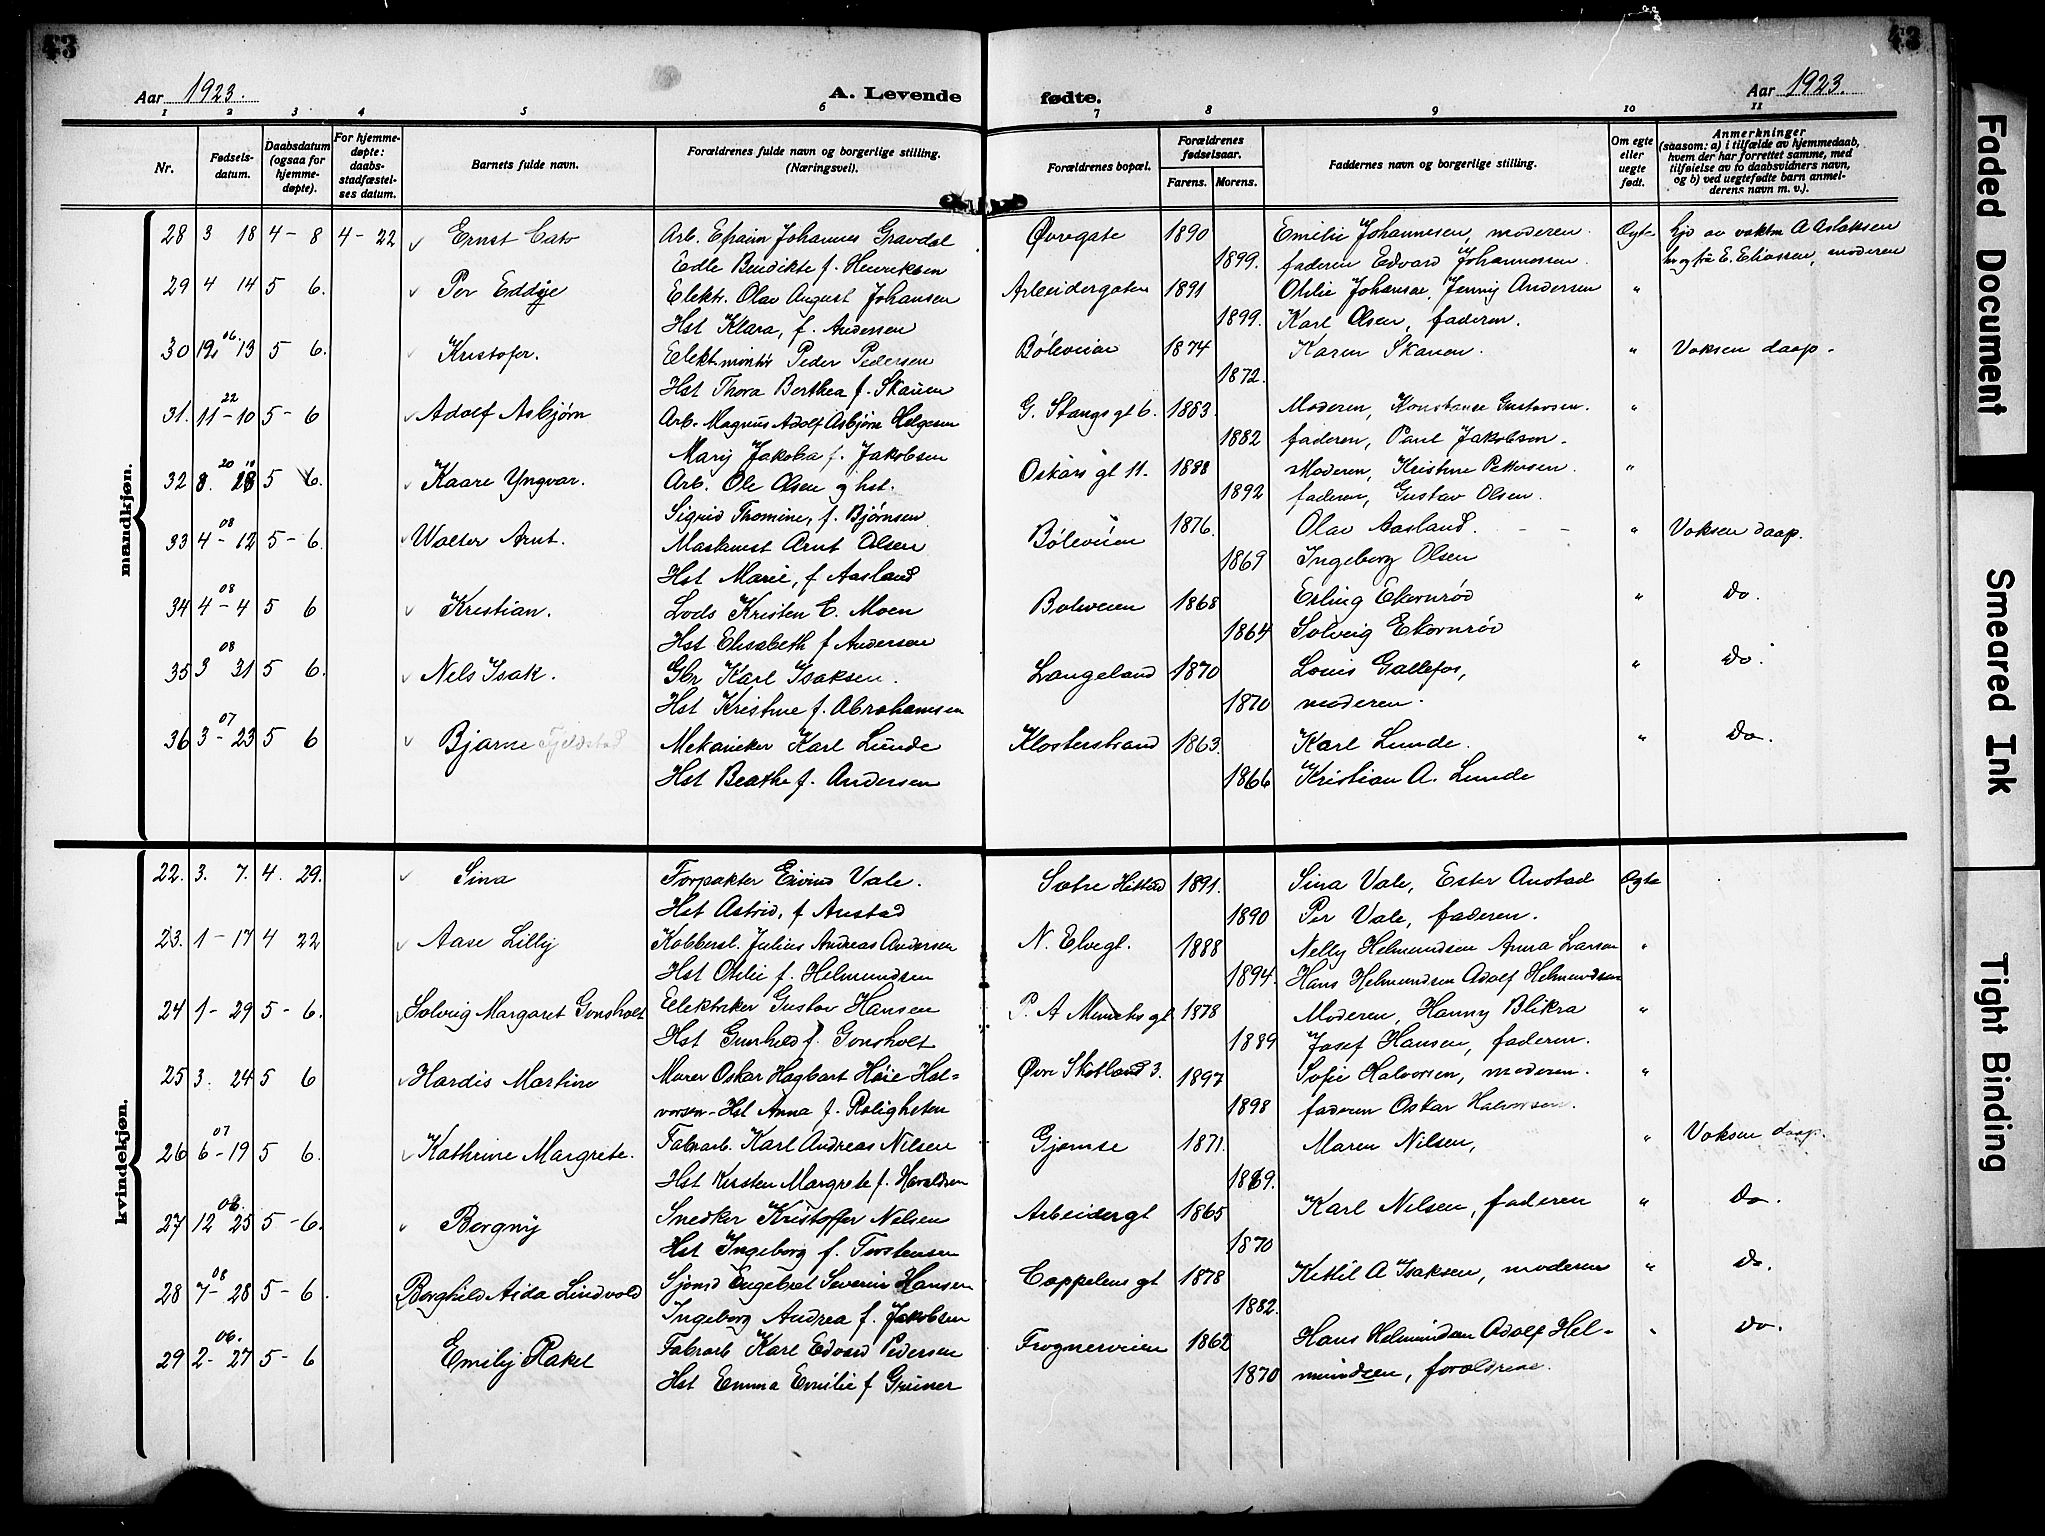 43
43
Aar 1923.
A. Levende fødte.
Aar 1923.
1 2 3 4 5 6 7 8 9 10 11
Nr.
Fødsels-
datum.
Daabsdatum
(ogsaa for
hjemme-
døpte).
For hjemme-
døpte:
daabs-
stadfæstel-
ses datum.
Barnets fulde navn.
Forældrenes fulde navn og borgerlige stilling.
(Næringsvei).
Forældrenes bopæl.
Forældrenes
fødselsaar.
Farens. Morens.
Faddernes navn og borgerlige stilling.
Om egte
eller
uegte
født.
Anmerkninger
(saasom: a) i tilfælde av hjemmedaab,
hvem der har forrettet samme, med
tilføielse av to daabsvidners navn,
og b) ved uegtefødte barn anmel-
derens navn m. v.).
mandkjøn.
28 3 18 4 - 8 4 - 22 Ernst Cato Arb. Efraim Johannes Gravdal Øvregate 1890 Emilie Johannesen, moderen. Egte hjd av vaktm A Aslaksen
Edle Bendikte f. Henriksen 1899. faderen Edvard Johannessen. E. Eliassen, moderen
29 4 14 5 6. Per Eddye Elektr. Olav August Johansen Arbeidergaten 1891 Otilie Johansen, Jenny Andersen "
Hst Klara, f. Andersen 1899. Karl Olsen, faderen.
30 12 06 13 5 6. Kristofer. Elekt. montør Peder Pedersen Bøleveien 1874 Karen Skauen. " Voksen daap.
Hst Thora Berthea f. Skauen 1872.
31. 11 - 22 10 5 - 6 Adolf Asbjørn Arb. Magnus Adolf Asbjørn Helgesen G. Stangs gt 6. 1883 Moderen, Konstanse Gustavsen. "
Mary Jakoba f. Jakobsen 1882 faderen, Paul Jakobsen.
32 8. 20 28 5 6. Kaare Yngvar. Arb. Ole Olsen og hst. Oskars gt 11. 1888 Moderen, Kristine Pettersen. "
Sigrid Thomine, f. Bjørnsen 1892 faderen, Gustav Olsen.
33 4 - 08 12 5 - 6. Walter Arnt. Maskinist Arnt Olsen Bøleveien 1876. Olav Aasland. - - " Voksen daap.
Hst Marie, f Aasland 1869 Ingeborg Olsen
34 4 - 08 4 5 6 Kristian. Lods Kristen C. Moen Boleveien 1868 Erling Ekornrød " Do.
Hst Elisabeth f Andersen 1864 Solveig Ekornrød
35 3 08 31 5 6. Nels Isak. Gbr Karl Isaksen. Langeland 1870 Louis Gallefos, " Do.
Hst Kristine f. Abrahamsen 1870 moderen.
36 3 - 07 23 5 6 Bjarne Fjeldstad Mekaniker Karl Lunde Klosterstrand 1863. Karl Lunde. " Do.
Hst Beathe f. Andersen 1866 Kristian A. Lunde
kvindekjøn.
22. 3. 7. 4. 29. Sina Forpakter Eivind Vale. Sætre 1891. Sina Vale, Ester Anstad Egte
Hst Astrid, f Anstad 1890 Per Vale, faderen.
23. 1 - 17 4 22 Aase Lilly Kobbersl. Julius Andreas Andersen N. Elvegt. 1888 Nelly Helmundsen Anna Larsen "
Hst Otilie f. Helmundsen 1894. Hans Helmundsen Adolf Helmundsen
24 1 - 29 5 - 6. Solveig Margaret Gonsholt Elektriker Gustav Hansen P. A Munchs gt 1878 Moderen, Hanny Blikra "
Hst Gunhild f. Gonsholt 1889 Josef Hansen, faderen.
25 3. 24 5 6 Hardis Martine Murer Oskar Hagbart Høie Hal= Øvre Skotland 3. 1897 Sofie Halvorsen, moderen. "
vorsen - Hst Anna f. Roligheten 1898 faderen Oskar Halvorsen.
26 6 - 07 19 5 6. Kathrine Margrete. Fabrarb. Karl Andreas Nilsen Gjemse 1871. Maren Nilsen, " Voksen daap.
Hst Kersten Margrete f. Haraldsen 1869.
27 12 06. 25 5 - 6. Borgny Snedker Kristoffer Nelsen Arbeidergt 1865 Karl Nilsen, faderen " Do.
Hst Ingeborg f. Torstensen 1870
28 7 - 08 28 5 - 6. Borghild Aida Lindvold Sjømd Engebret Severin Hansen Cappelens gt 1878 Kittil A Isaksen, moderen " Do.
Ingeborg Andrea f. Jakobsen 1882.
29 2 - 06. 27 5 - 6 Emily Rakel Fabrarb Karl Edvard Pedersen Frognerveien 1862 Hans Helmundsen Adolf Hel= " Do.
Hst Emma Emilie f Greiner 1870 mundsen, forældrene.
Faded Document
Smeared Ink
Tight Binding